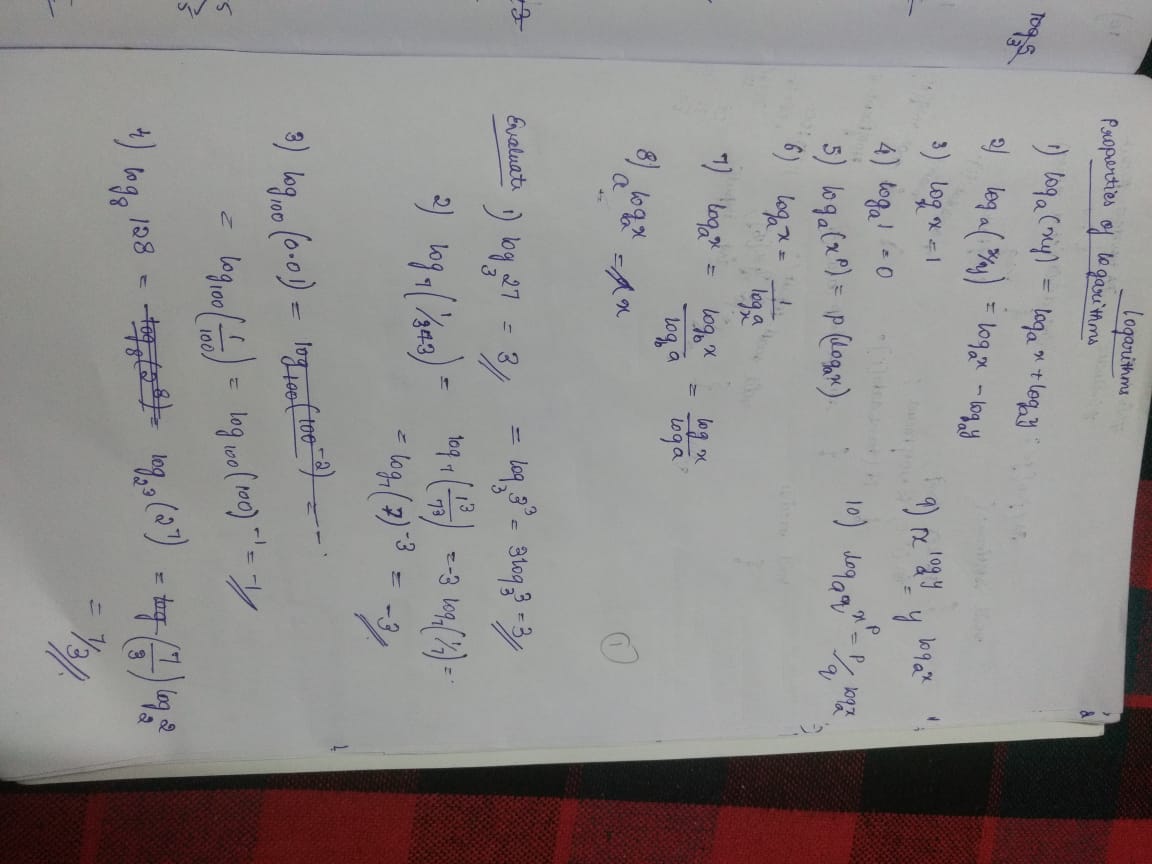 logarithms
Properties of logarithms
1) logₐ(xy) = logₐx + logₐy
2) logₐ(x/y) = logₐx - logₐy
3) logₓx = 1
4) logₐ1 = 0
5) logₐ(xᵖ) = p(logₐx)
6) logₐx = 1/logₓa
7) logₐx = log_b x / log_b a = log x / log a
8) a^(logₐx) = x
9) x^(logₐy) = y^(logₐx)
10) log_(a^q) x^p = p/q logₐx
1
Evaluate 1) log₃27 = 3 = log₃3³ = 3log₃3 = 3
2) log₇(1/343) = log₇(1³/7³) = -3 log₇(1/7) =
= log₇(7)⁻³ = -3
3) log₁₀₀(0.01) = log₁₀₀(100⁻²) = -
= log₁₀₀(1/100) = log₁₀₀(100)⁻¹ = -1
4) log₈128 = log₈(2⁸) = log_(2³)(2⁷) = log (7/3) log₂2
= 7/3
log₃5